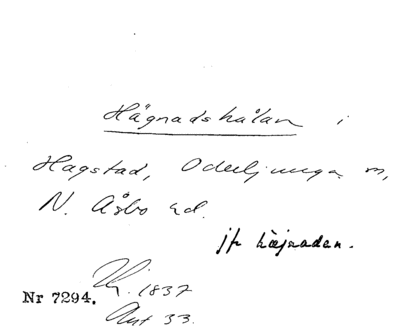 Hägnadshålan i
Hagstad, Oderljunga sn,
N. Åsbo hd.
jfr hägnaden.
1837
Nr 7294.
Ant 33.